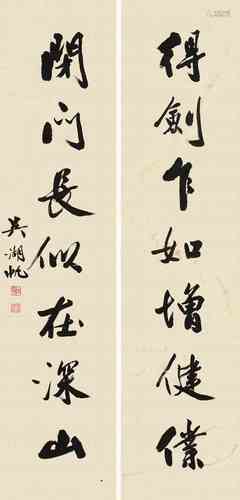 得劍乍如增健僕
閉門長似在深山
吳湖帆